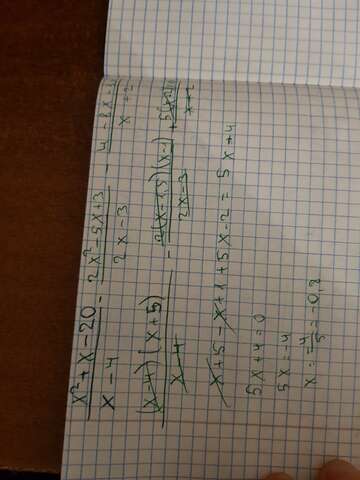 x² + x - 20 / x - 4 - 2x² - 5x + 3 / 2x - 3 -
(x-4)(x+5) / x-4 - (x-1) / 2x-3 +
x + 5 - x + 1 + 5x - 2 = 5x + 4
5x + 4 = 0
5x = -4
x = -4/5 = -0,8